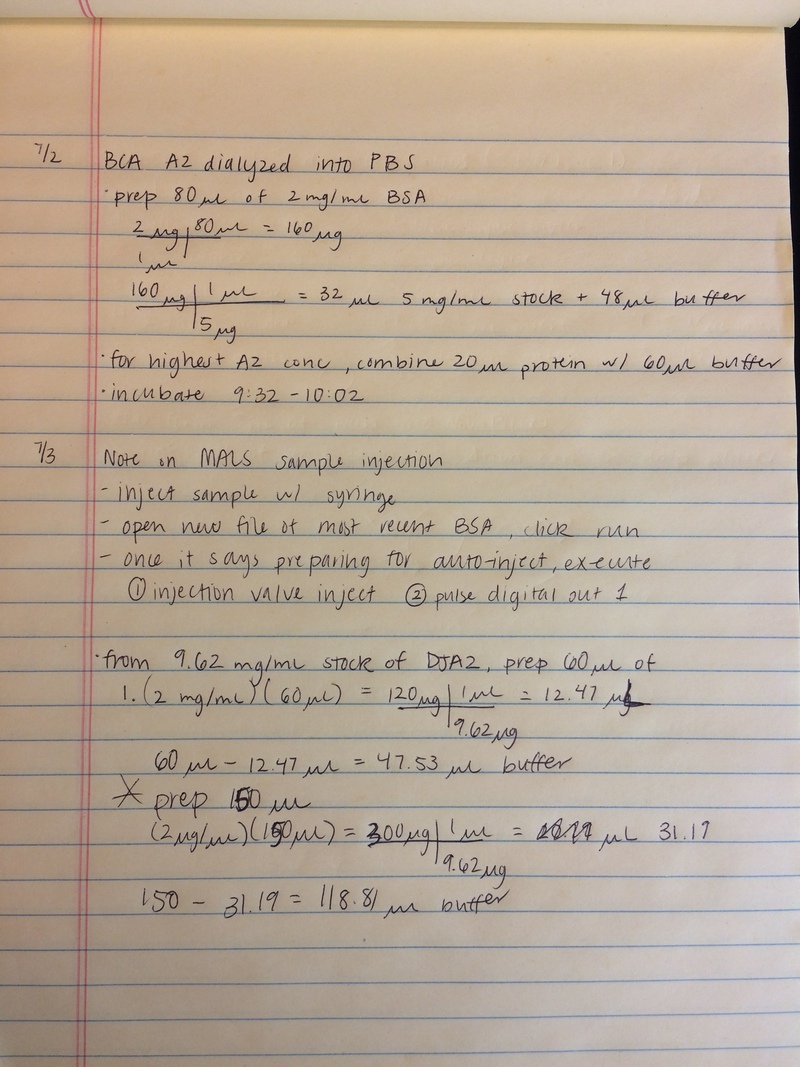 7/2 BCA A2 dialyzed into PBS
· prep 80 µL of 2 mg/mL BSA
2 µg | 80 µL = 160 µg
1 µL
160 µg | 1 µL = 32 µL 5 mg/mL stock + 48 µL buffer
5 µg
· for highest A2 conc, combine 20 µL protein w/ 60 µL buffer
· incubate 9:32 - 10:02
7/3 Note on MALS sample injection
- inject sample w/ syringe
- open new file of most recent BSA, click run
- once it says preparing for auto-inject, execute
① injection valve inject ② pulse digital out 1
· from 9.62 mg/mL stock of DJA2, prep 60 µL of
1. (2 mg/mL)(60 µL) = 120 µg | 1 µL = 12.47 µL
9.62 µg
60 µL - 12.47 µL = 47.53 µL buffer
* prep 150 µL
(2 µg/µL)(150 µL) = 300 µg | 1 µL = µL 31.19
9.62 µg
150 - 31.19 = 118.81 µL buffer